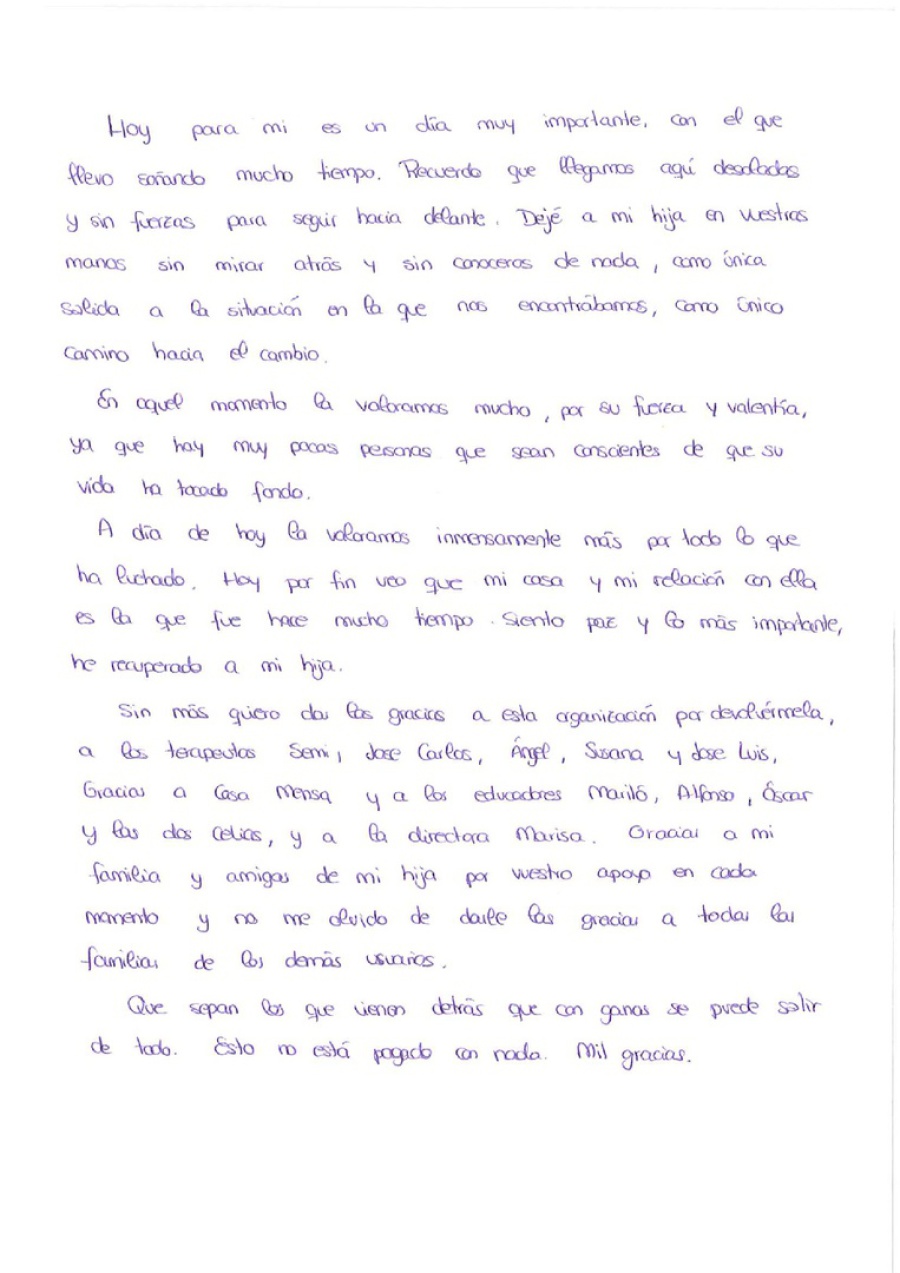 Hoy para mi es un día muy importante, con el que
llevo soñando mucho tiempo. Recuerdo que llegamos aquí desoladas
y sin fuerzas para seguir hacia delante. Dejé a mi hija en vuestras
manos sin mirar atrás y sin conoceros de nada, como única
salida a la situación en la que nos encontrábamos, como único
camino hacia el cambio.
En aquel momento la valoramos mucho, por su fuerza y valentía,
ya que hay muy pocas personas que sean conscientes de que su
vida ha tocado fondo.
A día de hoy la valoramos inmensamente más por todo lo que
ha luchado. Hoy por fin veo que mi casa y mi relación con ella
es la que fue hace mucho tiempo. Siento paz y lo más importante,
he recuperado a mi hija.
Sin más quiero dar las gracias a esta organización por devolvérmela,
a los terapeutas Semi, Jose Carlos, Ángel, Susana y Jose Luis,
Gracias a Casa Mensa y a los educadores Mariló, Alfonso, Óscar
y las dos Celias, y a la directora Marisa. Gracias a mi
familia y amigas de mi hija por vuestro apoyo en cada
momento y no me olvido de darle las gracias a todas las
familias de los demás usuarios.
Que sepan los que vienen detrás que con ganas se puede salir
de todo. Esto no está pagado con nada. Mil gracias.